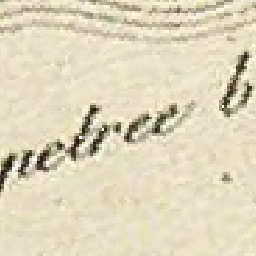 petree b